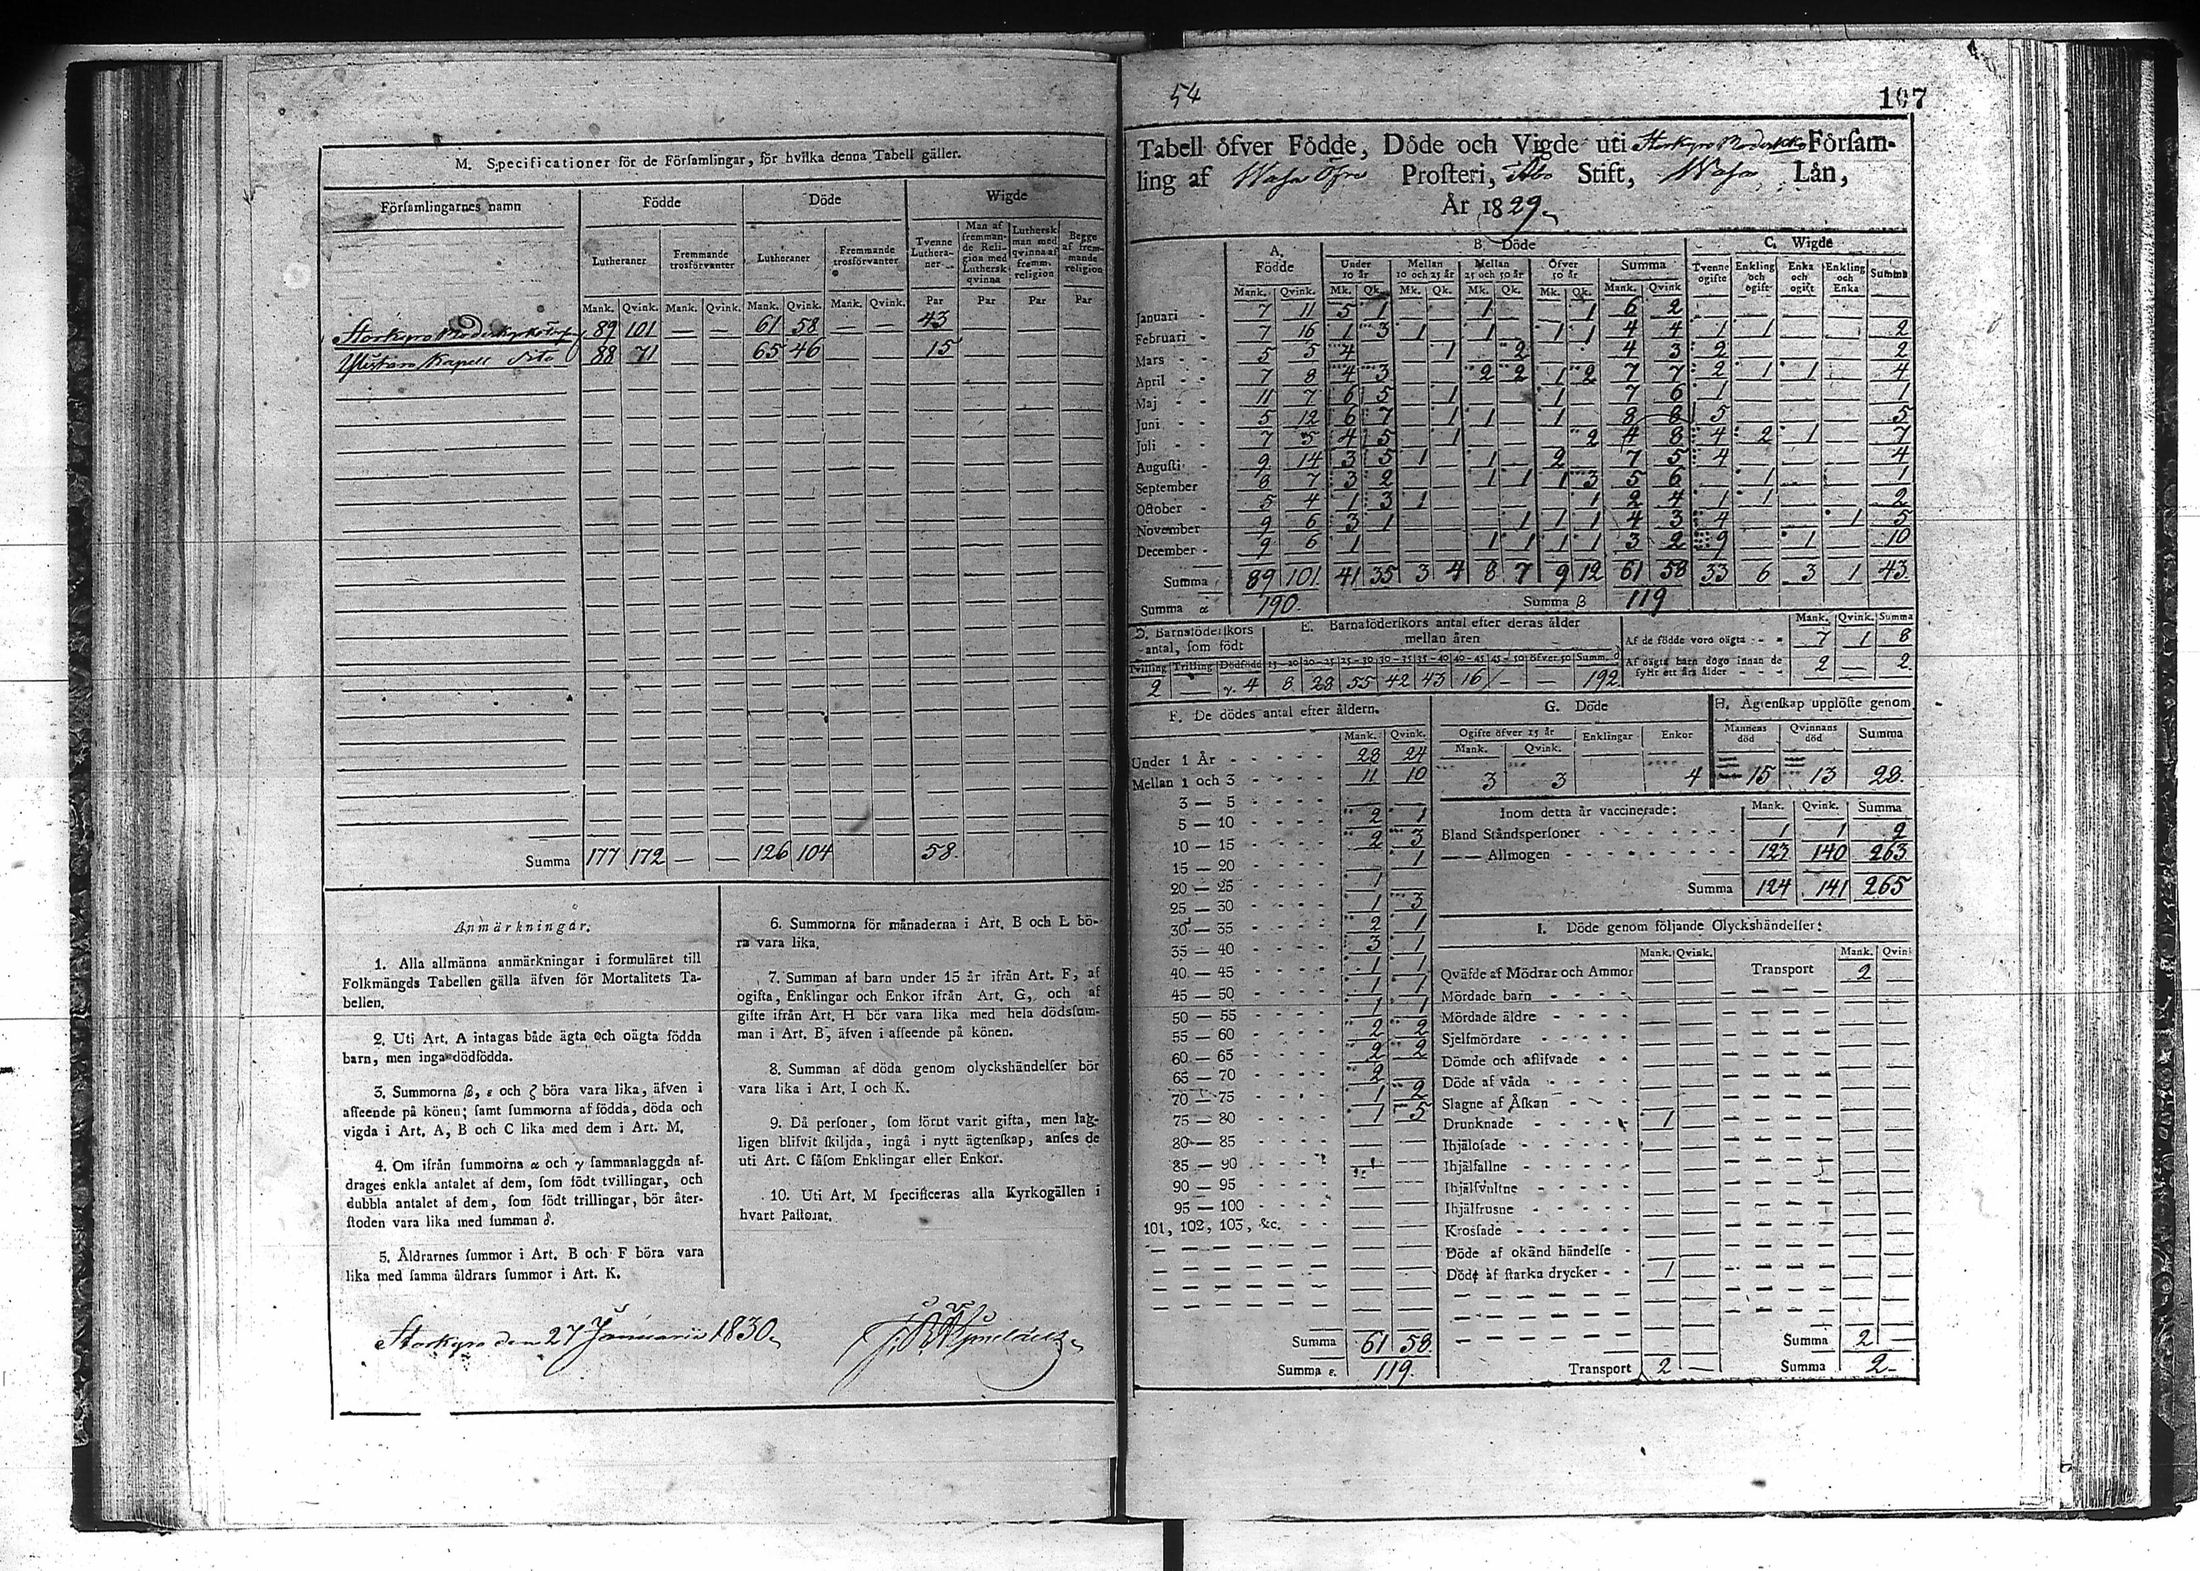 M. Specificationer för de Församlingar, för hvilka denna Tabell gäller.
Församlingarnes namn Födde Döde Wigde
Lutheraner Fremmande trosförvanter Lutheraner Fremmande trosförvanter Tvenne Lutheraner Man af fremmande Religion med Luthersk qvinna Luthersk man med qvinna af fremm. religion Begge af fremmande religion
Mank. Qvink. Mank. Qvink. Mank. Qvink. Mank. Qvink. Par Par Par Par
Storkyro Moderkyrko 89 101 — — 61 58 — — 43
Ylistaro Kapell dito 88 71 65 46 15
Summa 177 172 — — 126 104 58.
Anmärkningar.
1. Alla allmänna anmärkningar i formuläret till
Folkmängds Tabellen gälla äfven för Mortalitets Ta-
bellen.
2. Uti Art. A intagas både ägta och oägta födda
barn, men inga dödfödda.
3. Summorna β, ε och ζ böra vara lika, äfven i
afseende på könen; samt summorna af födda, döda och
vigda i Art. A, B och C lika med dem i Art. M.
4. Om ifrån summorna α och γ sammanlaggda af-
drages enkla antalet af dem, som födt tvillingar, och
dubbla antalet af dem, som födt trillingar, bör åter-
stoden vara lika med summan δ.
5. Åldrarnes summor i Art. B och F böra vara
lika med samma åldrars summor i Art. K.
6. Summorna för månaderna i Art. B och L bö-
ra vara lika.
7. Summan af barn under 15 år ifrån Art. F, af
ogifta, Enklingar och Enkor ifrån Art. G, och af
gifte ifrån Art. H bör vara lika med hela dödssum-
man i Art. B, äfven i afseende på könen.
8. Summan af döda genom olyckshändelser bör
vara lika i Art. I och K.
9. Då personer, som förut varit gifta, men lag-
ligen blifvit skiljda, ingå i nytt ägtenskap, anses de
uti Art. C såsom Enklingar eller Enkor.
10. Uti Art. M specificeras alla Kyrkogällen i
hvart Pastorat.
Storkyro den 27 Januarii 1830
54
107
Tabell öfver Födde, Döde och Vigde uti Storkyro Moderkyrko Församling
af Wasa Öfre Prosteri, Åbo Stift, Wasa Län,
År 1829
A. Födde B. Döde C. Wigde
Under 10 år Mellan 10 och 25 år Mellan 25 och 50 år Öfver 50 år Summa Tvenne ogifte Enkling och ogift Enka och ogift Enkling och Enka Summa
Mank. Qvink. Mk. Qk. Mk. Qk. Mk. Qk. Mk. Qk. Mank. Qvink
Januari 7 11 5 1 1 1 6 2
Februari 7 16 1 3 1 1 1 1 4 4 1 1 2
Mars 5 5 4 1 2 4 3 2 2
April 7 8 4 3 2 2 1 2 7 7 2 1 1 4
Maj 11 7 6 5 1 1 7 6 1 1
Juni 5 12 6 7 1 1 1 8 8 5 5
Juli 7 5 4 5 1 2 4 8 4 2 1 7
Augusti 9 14 3 5 1 1 2 7 5 4 4
September 8 7 3 2 1 1 1 3 5 6 1 1
October 5 4 1 3 1 1 2 4 1 1 2
November 9 6 3 1 1 1 1 4 3 4 1 5
December 9 6 1 1 1 1 1 3 2 9 1 10
Summa 89 101 41 35 3 4 8 7 9 12 61 58 33 6 3 1 43
Summa α 190. Summa β 119
D. Barnaföderskors antal, som födt
Tvilling Trilling Dödfödd
2 — γ. 4
E. Barnaföderskors antal efter deras ålder mellan åren
15—20 20—25 25—30 30—35 35—40 40—45 45—50 öfver 50 Summ. δ
8 28 55 42 43 16 — — 192
Mank. Qvink. Summa
Af de födde voro oägta 7 1 8
Af oägta barn dogo innan de fyllt ett års ålder 2 — 2.
F. De dödes antal efter åldern.
Mank. Qvink.
Under 1 År 28 24
Mellan 1 och 3 11 10
3 — 5
5 — 10 2 1
10 — 15 2 3
15 — 20 1
20 — 25 1
25 — 30 1 3
30 — 35 2 1
35 — 40 3 1
40 — 45 1 1
45 — 50 1 1
50 — 55 1 1
55 — 60 2 2
60 — 65 2 2
65 — 70 2
70 — 75 1 2
75 — 80 1 5
80 — 85
85 — 90
90 — 95
95 — 100
101, 102, 103, &c.
Summa 61 58
Summa ε. 119.
G. Döde
Ogifte öfver 15 år Enklingar Enkor
Mank. Qvink.
3 3 4
H. Ägtenskap upplöste genom
Mannens död Qvinnans död Summa
15 13 28.
Inom detta år vaccinerade: Mank. Qvink. Summa
Bland Ståndspersoner 1 1 2
— — Allmogen 123 140 263
Summa 124 141 265
I. Döde genom följande Olyckshändelser:
Mank. Qvink. Mank. Qvink
Qväfde af Mödrar och Ammor Transport 2
Mördade barn
Mördade äldre
Sjelfmördare
Dömde och aflifvade
Döde af våda
Slagne af Åskan
Drunknade 1
Ihjälosade
Ihjälfallne
Ihjälsvultne
Ihjälfrusne
Krossade
Döde af okänd händelse
Döde af starka drycker 1
Summa 2
Transport 2 — Summa 2